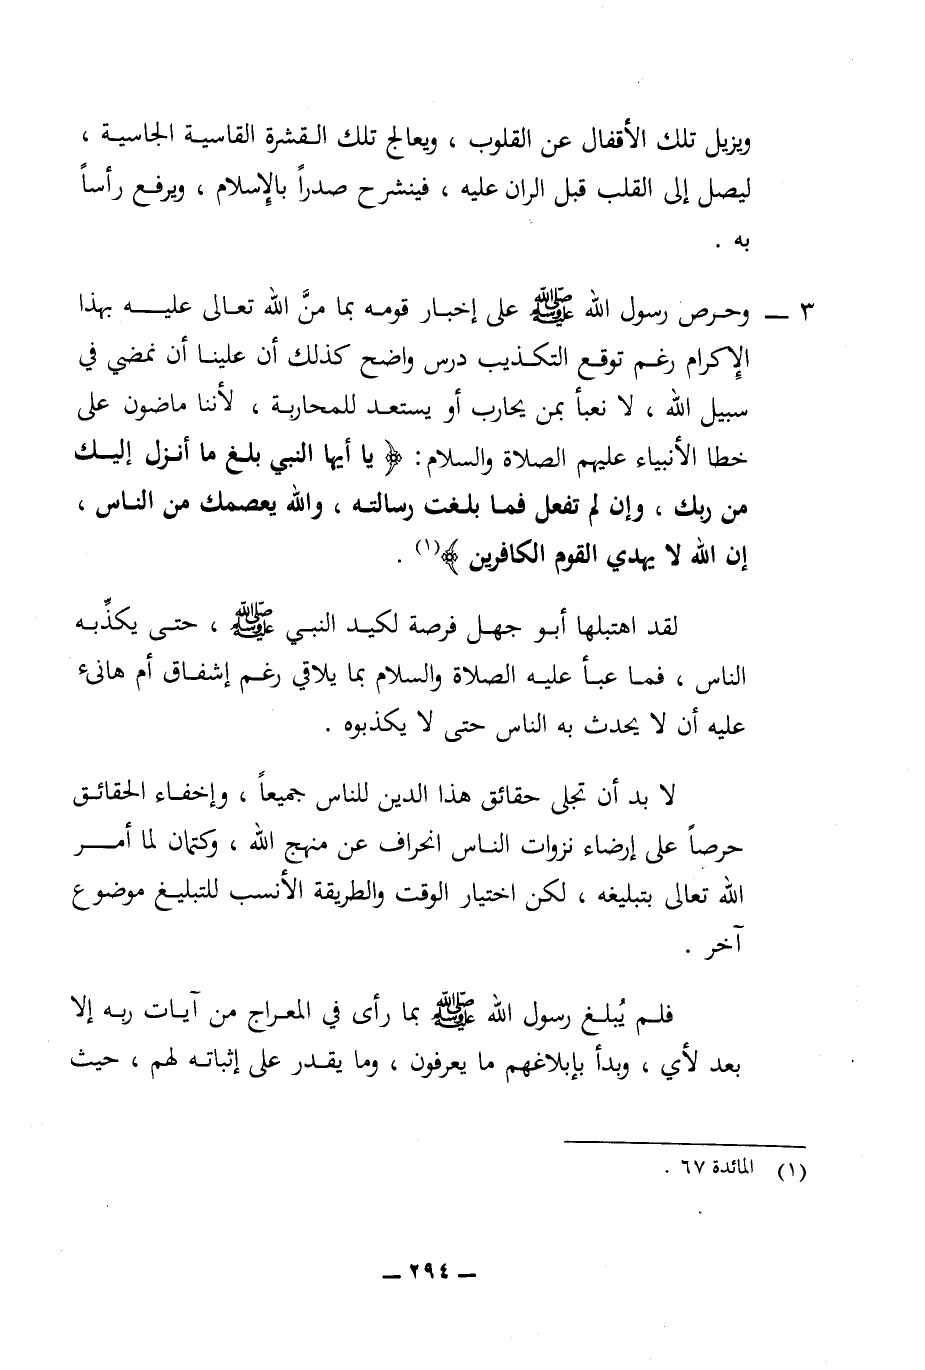 ويزيل تلك الأقفال عن القلوب ، ويعالج تلك القشرة القاسية الجاسية ،
ليصل إلى القلب قبل الران عليه ، فينشرح صدراً بالإسلام ، ويرفع رأساً
به .
٣ ـ وحرص رسول الله ﷺ على إخبار قومه بما منَّ الله تعالى عليه بهذا
الإكرام رغم توقع التكذيب درس واضح كذلك أن علينا أن نمضي في
سبيل الله ، لا نعبأ بمن يحارب أو يستعد للمحاربة ، لأننا ماضون على
خطا الأنبياء عليهم الصلاة والسلام : ﴿ يا أيها النبي بلغ ما أنزل إليك
من ربك ، وإن لم تفعل فما بلغت رسالته ، والله يعصمك من الناس ،
إن الله لا يهدي القوم الكافرين ﴾(١) .
لقد اهتبلها أبو جهل فرصة لكيد النبي ﷺ ، حتى يكذِّبه
الناس ، فما عبأ عليه الصلاة والسلام بما يلاقي رغم إشفاق أم هانىء
عليه أن لا يحدث به الناس حتى لا يكذبوه .
لا بد أن تجلى حقائق هذا الدين للناس جميعاً ، وإخفاء الحقائق
حرصاً على إرضاء نزوات الناس انحراف عن منهج الله ، وكتمان لما أمر
الله تعالى بتبليغه ، لكن اختيار الوقت والطريقة الأنسب للتبليغ موضوع
آخر .
فلم يُبلغ رسول الله ﷺ بما رأى في المعراج من آيات ربه إلا
بعد لأي ، وبدأ بإبلاغهم ما يعرفون ، وما يقدر على إثباته لهم ، حيث
(١) المائدة ٦٧ .
ـ ٢٩٤ ـ